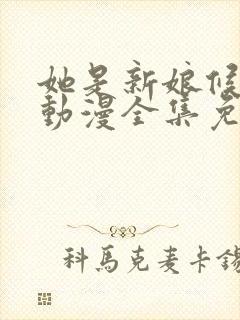 她是新娘候
動漫全集免
科馬克麦卡錫